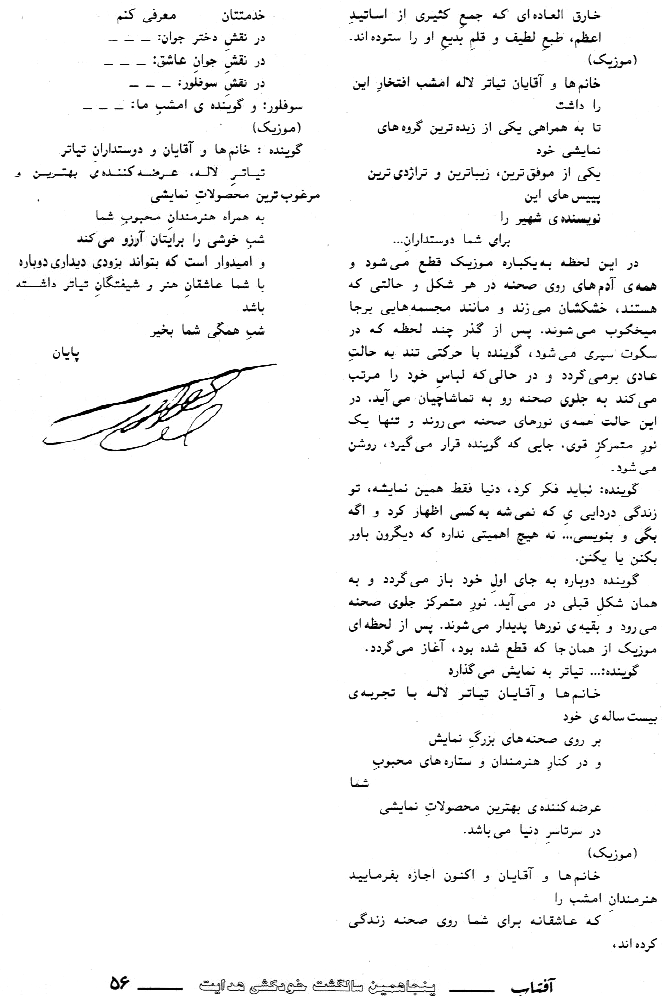 خارق العاده ای که جمعِ کثیری از اساتیدِ
اعظم، طبعِ لطیف و قلمِ بدیعِ او را ستوده اند.
(موزیک)
خانم ها و آقایان تیاتر لاله امشب افتخارِ این
را داشت
تا به همراهی یکی از زبده ترین گروه های
نمایشی خود
یکی از موفق ترین، زیباترین و تراژدی ترین
پییس های این
نویسنده ی شهیر را
برای شما دوستداران...
در این لحظه به یکباره موزیک قطع می شود و
همه ی آدم های روی صحنه در هر شکل و حالتی که
هستند، خشکشان می زند و مانند مجسمه هایی برجا
میخکوب می شوند. پس از گذر چند لحظه که در
سکوت سپری می شود، گوینده با حرکتی تند به حالتِ
عادی برمی گردد و در حالی که لباسِ خود را مرتب
می کند به جلوی صحنه رو به تماشاچیان می آید. در
این حالت همه ی نورهای صحنه می روند و تنها یک
نورِ متمرکزِ قوی، جایی که گوینده قرار می گیرد، روشن
می شود.
گوینده: نباید فکر کرد، دنیا فقط همین نمایشه، تو
زندگی دردایی یِ که نمی شه به کسی اظهار کرد و اگه
بگی و بنویسی... نه هیچ اهمیتی نداره که دیگرون باور
بکنن یا یکنن.
گوینده دوباره به جای اولِ خود باز می گردد و به
همان شکلِ قبلی در می آید. نورِ متمرکز جلوی صحنه
می رود و بقیه ی نورها پدیدار می شوند. پس از لحظه ای
موزیک از همان جا که قطع شده بود، آغاز می گردد.
گوینده:... تیاتر به نمایش می گذارد
خانم ها و آقایان تیاتر لاله با تجربه ی
بیست ساله ی خود
بر روی صحنه های بزرگِ نمایش
و در کنارِ هنرمندان و ستاره های محبوبِ
شما
عرضه کننده ی بهترین محصولاتِ نمایشی
در سرتاسرِ دنیا می باشد.
(موزیک)
خانم ها و آقایان و اکنون اجازه بفرمایید
هنرمندانِ امشب را
که عاشقانه برای شما روی صحنه زندگی
کرده اند،
خدمتتان معرفی کنم
در نقشِ دختر جوان: ـ ـ ـ
در نقشِ جوانِ عاشق: ـ ـ ـ
در نقشِ سوفلور: ـ ـ ـ
سوفلور: و گوینده ی امشبِ ما: ـ ـ ـ
(موزیک)
گوینده : خانم ها و آقایان و دوستدارانِ تیاتر
تیاتر لاله، عرضه کننده ی بهترین و
مرغوب ترین محصولاتِ نمایشی
به همراه هنرمندانِ محبوبِ شما
شبِ خوشی را برایتان آرزو می کند
و امیدوار است که بتواند بزودی دیداری دوباره
با شما عاشقانِ هنر و شیفتگانِ تیاتر داشته
باشد
شبِ همگی شما بخیر
پایان
آفتاب ــــــ پنجاهمین سالگشت خودکشی هدایت ــــــ ۵۶